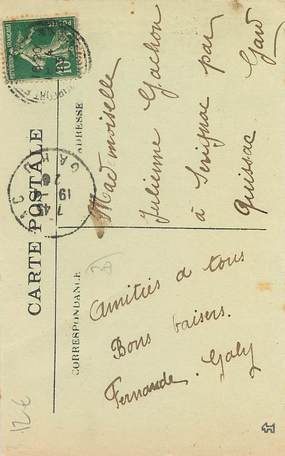 CARTE POSTALE
CORRESPONDANCE
ADRESSE
Mademoiselle
Julienne Gachon
à Sérignac par
Quissac Gard
Amitiés a tous
Bons baisers.
Fernande. Galy
12€
10
GARD
7
19